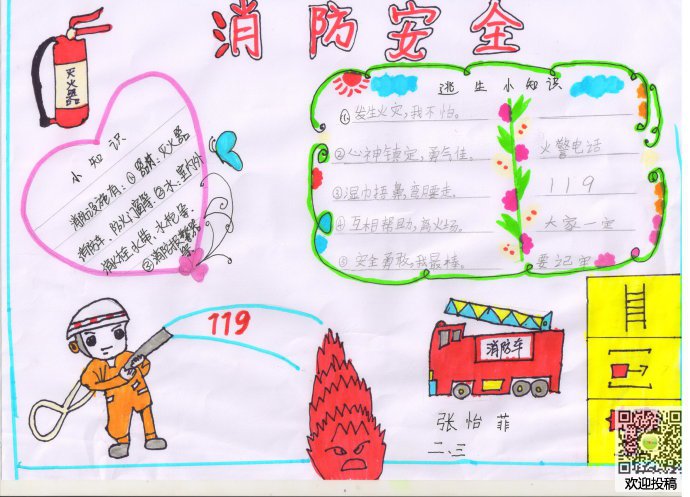 消防安全
灭火器
小知识
消防设施有:①器械:灭火器
消防车、防火
消火栓、水带、水枪等。
逃生小知识
①发生火灾,我不怕。
②心神镇定,勇气佳。
③湿巾捂鼻,弯腰走。
④互相帮助,离火场。
⑤安全勇敢,我最棒。
火警电话
119
大家一定
要记牢
119
消防车
张怡菲
二、三
欢迎投稿